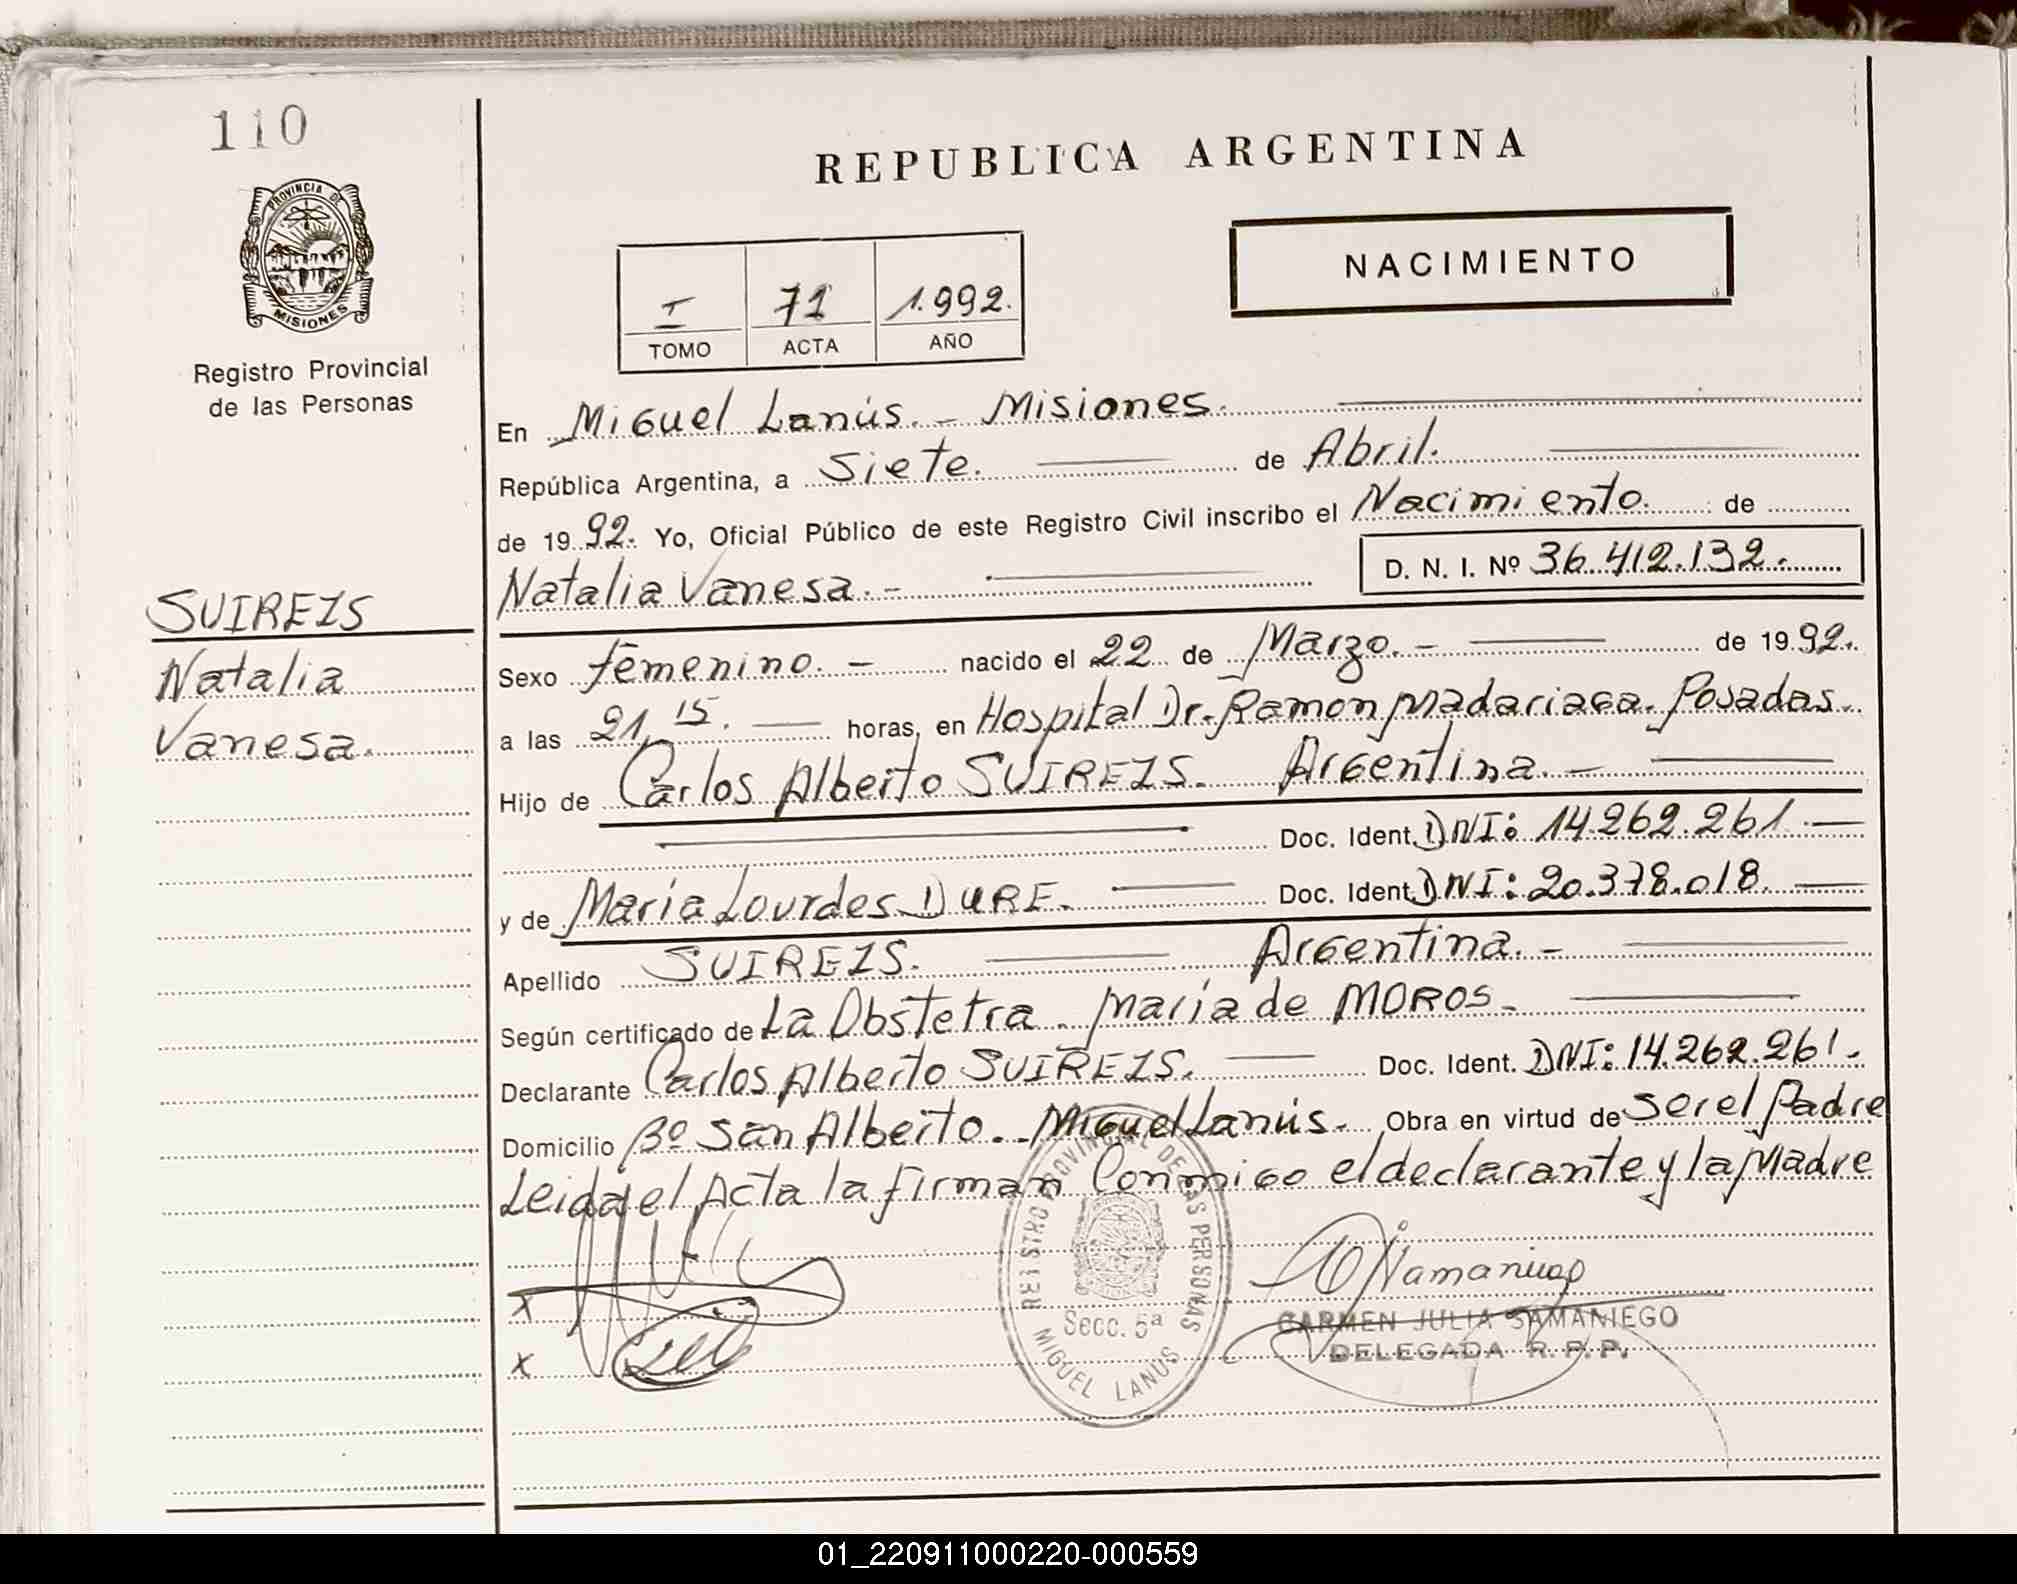 110
REPUBLICA ARGENTINA
PROVINCIA DE
MISIONES
NACIMIENTO
I 71 1.992.
TOMO ACTA AÑO
Registro Provincial
de las Personas
En Miguel Lanús. - Misiones.
República Argentina, a Siete. de Abril.
de 19 92. Yo, Oficial Público de este Registro Civil inscribo el Nacimiento. de
Natalia Vanesa. - D. N. I. Nº 36.412.132.
SUIREZS
Natalia
Vanesa.
Sexo femenino. - nacido el 22 de Marzo. - de 19 92.
a las 21,15. horas, en Hospital Dr. Ramon Madariaga. Posadas.
Hijo de Carlos Alberto SUIREZS. Argentina. -
Doc. Ident. DNI: 14.262.261.
y de María Lourdes DURE. Doc. Ident. DNI: 20.378.018.
Apellido SUIREZS. Argentina. -
Según certificado de La Obstetra. María de MOROS.
Declarante Carlos Alberto SUIREZS. Doc. Ident. DNI: 14.262.261.
Domicilio Bº San Alberto. Miguel Lanús. Obra en virtud de ser el Padre
Leida el Acta la firman Conmigo el declarante y la Madre
x
x
REGISTRO PROVINCIAL DE LAS PERSONAS
Secc. 5ª
MIGUEL LANUS
CARMEN JULIA SAMANIEGO
DELEGADA R. P. P.
01_220911000220-000559